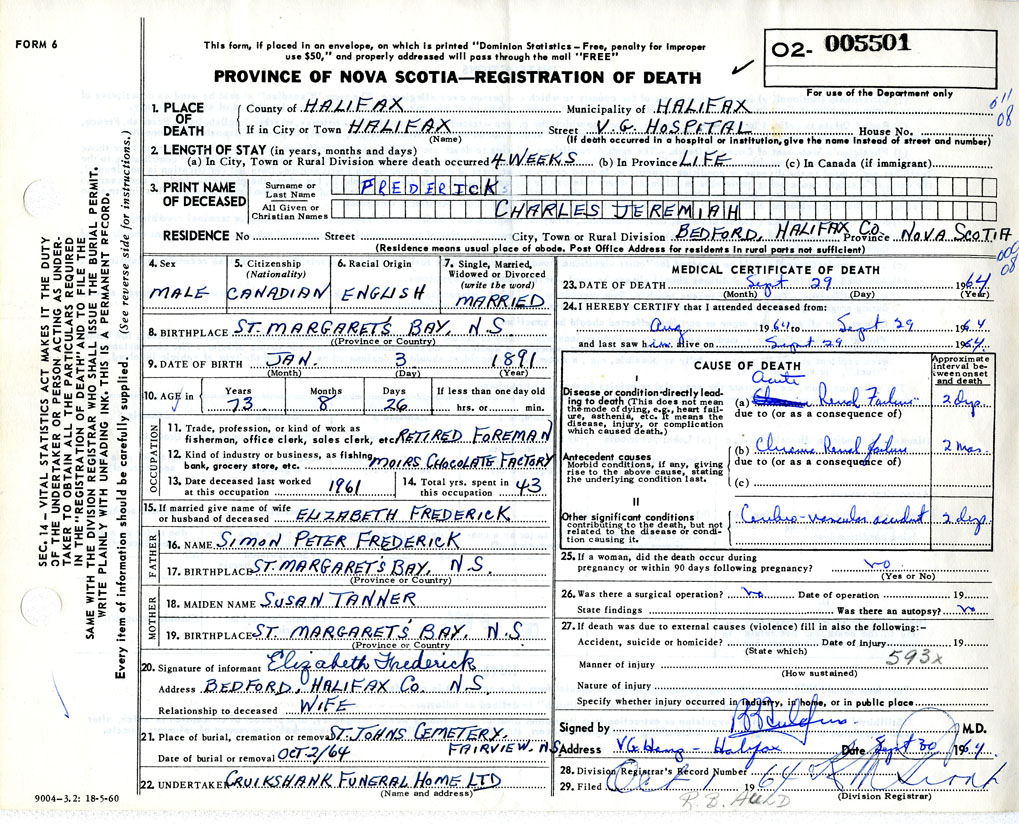 FORM 6
This form, if placed in an envelope, on which is printed "Dominion Statistics – Free, penalty for improper
use $50," and properly addressed will pass through the mail "FREE"
O2- 005501
PROVINCE OF NOVA SCOTIA—REGISTRATION OF DEATH
For use of the Department only
011
08
1. PLACE OF DEATH
County of HALIFAX Municipality of HALIFAX
If in City or Town HALIFAX Street V.G. HOSPITAL House No.
(Name) (If death occurred in a hospital or institution, give the name instead of street and number)
2. LENGTH OF STAY (in years, months and days)
(a) In City, Town or Rural Division where death occurred 4 WEEKS (b) In Province LIFE (c) In Canada (if immigrant)
3. PRINT NAME OF DECEASED
Surname or Last Name FREDERICK
All Given or Christian Names CHARLES JEREMIAH
RESIDENCE No Street City, Town or Rural Division BEDFORD, HALIFAX CO. Province NOVA SCOTIA
(Residence means usual place of abode. Post Office Address for residents in rural parts not sufficient)
000
08
4. Sex MALE
5. Citizenship (Nationality) CANADIAN
6. Racial Origin ENGLISH
7. Single, Married, Widowed or Divorced (write the word) MARRIED
8. BIRTHPLACE ST. MARGARET'S BAY, N.S.
(Province or Country)
9. DATE OF BIRTH JAN. 3 1891
(Month) (Day) (Year)
10. AGE in Years 73 Months 8 Days 26 If less than one day old hrs. or min.
OCCUPATION
11. Trade, profession, or kind of work as
fisherman, office clerk, sales clerk, etc. RETIRED FOREMAN
12. Kind of industry or business, as fishing,
bank, grocery store, etc. MOIRS CHOCOLATE FACTORY
13. Date deceased last worked at this occupation 1961
14. Total yrs. spent in this occupation 43
15. If married give name of wife
or husband of deceased ELIZABETH FREDERICK
FATHER
16. NAME SIMON PETER FREDERICK
17. BIRTHPLACE ST. MARGARET'S BAY, N.S.
(Province or Country)
MOTHER
18. MAIDEN NAME SUSAN TANNER
19. BIRTHPLACE ST. MARGARET'S BAY, N.S
(Province or Country)
20. Signature of informant Elizabeth Frederick
Address BEDFORD, HALIFAX CO. N.S.
Relationship to deceased WIFE
21. Place of burial, cremation or removal ST. JOHNS CEMETERY.
FAIRVIEW. N.S
Date of burial or removal OCT 2/64
22. UNDERTAKER CRUIKSHANK FUNERAL HOME LTD
(Name and address)
9004-3.2: 18-5-60
MEDICAL CERTIFICATE OF DEATH
23. DATE OF DEATH Sept 29 1964
(Month) (Day) (Year)
24. I HEREBY CERTIFY that I attended deceased from:
Aug 1964 to Sept 29 1964
and last saw him alive on Sept 29 1964.
CAUSE OF DEATH
Approximate interval between onset and death
I
Disease or condition directly leading to death (This does not mean the mode of dying, e.g., heart failure, asthenia, etc. It means the disease, injury, or complication which caused death.)
(a) Acute Renal Failure 2 dys.
due to (or as a consequence of)
Antecedent causes
Morbid conditions, if any, giving rise to the above cause, stating the underlying condition last.
(b) Chronic Renal failure 2 mos.
due to (or as a consequence of)
(c)
II
Other significant conditions
contributing to the death, but not related to the disease or condition causing it.
Cerebro-vascular accident 2 dys.
25. If a woman, did the death occur during
pregnancy or within 90 days following pregnancy? no
(Yes or No)
26. Was there a surgical operation? no Date of operation 19
State findings Was there an autopsy? No
27. If death was due to external causes (violence) fill in also the following:–
Accident, suicide or homicide? Date of injury 19
(State which)
593x
Manner of injury
(How sustained)
Nature of injury
Specify whether injury occurred in industry, in home, or in public place
Signed by M.D.
Address V.G. Hosp - Halifax Date Sept 30 1964
28. Division Registrar's Record Number
29. Filed Oct 1 1964
R. B. AULD
(Division Registrar)
SEC. 14 – VITAL STATISTICS ACT MAKES IT THE DUTY
OF THE UNDERTAKER OR PERSON ACTING AS UNDER-
TAKER TO OBTAIN ALL THE PARTICULARS REQUIRED
IN THE "REGISTRATION OF DEATH" AND TO FILE THE
SAME WITH THE DIVISION REGISTRAR WHO SHALL ISSUE THE BURIAL PERMIT.
WRITE PLAINLY WITH UNFADING INK. THIS IS A PERMANENT RECORD.
Every item of information should be carefully supplied. (See reverse side for instructions.)